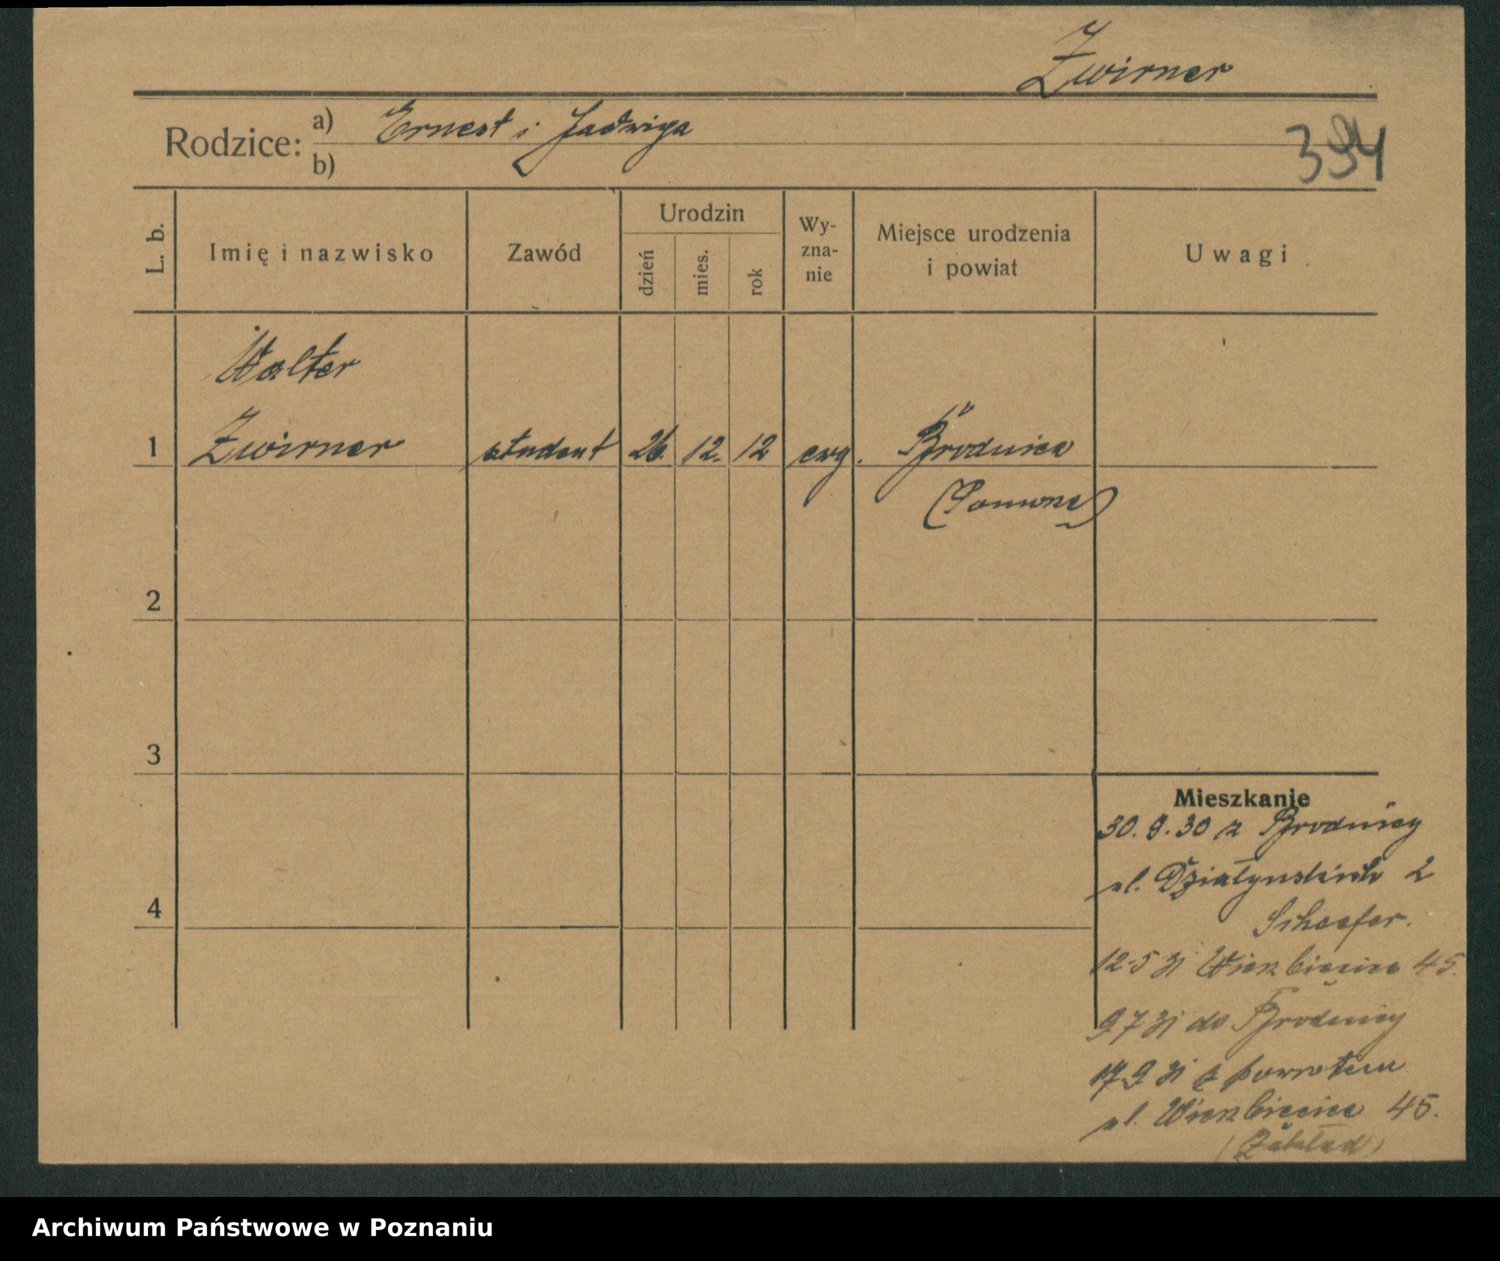 Zwirner
Rodzice: a) Ernest i Jadwiga
b)
394
L. b.
Imię i nazwisko
Zawód
Urodzin
dzień
mies.
rok
Wy-
zna-
nie
Miejsce urodzenia
i powiat
Uwagi
Walter
1 Zwirner student 26. 12. 12 ewg. Brodnica
(Pomorze)
2
3
4
Mieszkanie
30.9.30 z Brodnicy
ul. Działyńskich 2
Schaefer.
12-5 31 Wierzbięcice 45.
9 7 31 do Brodnicy
17 9 31 z powrotem
ul. Wierzbięcice 45.
(Zakład)
Archiwum Państwowe w Poznaniu